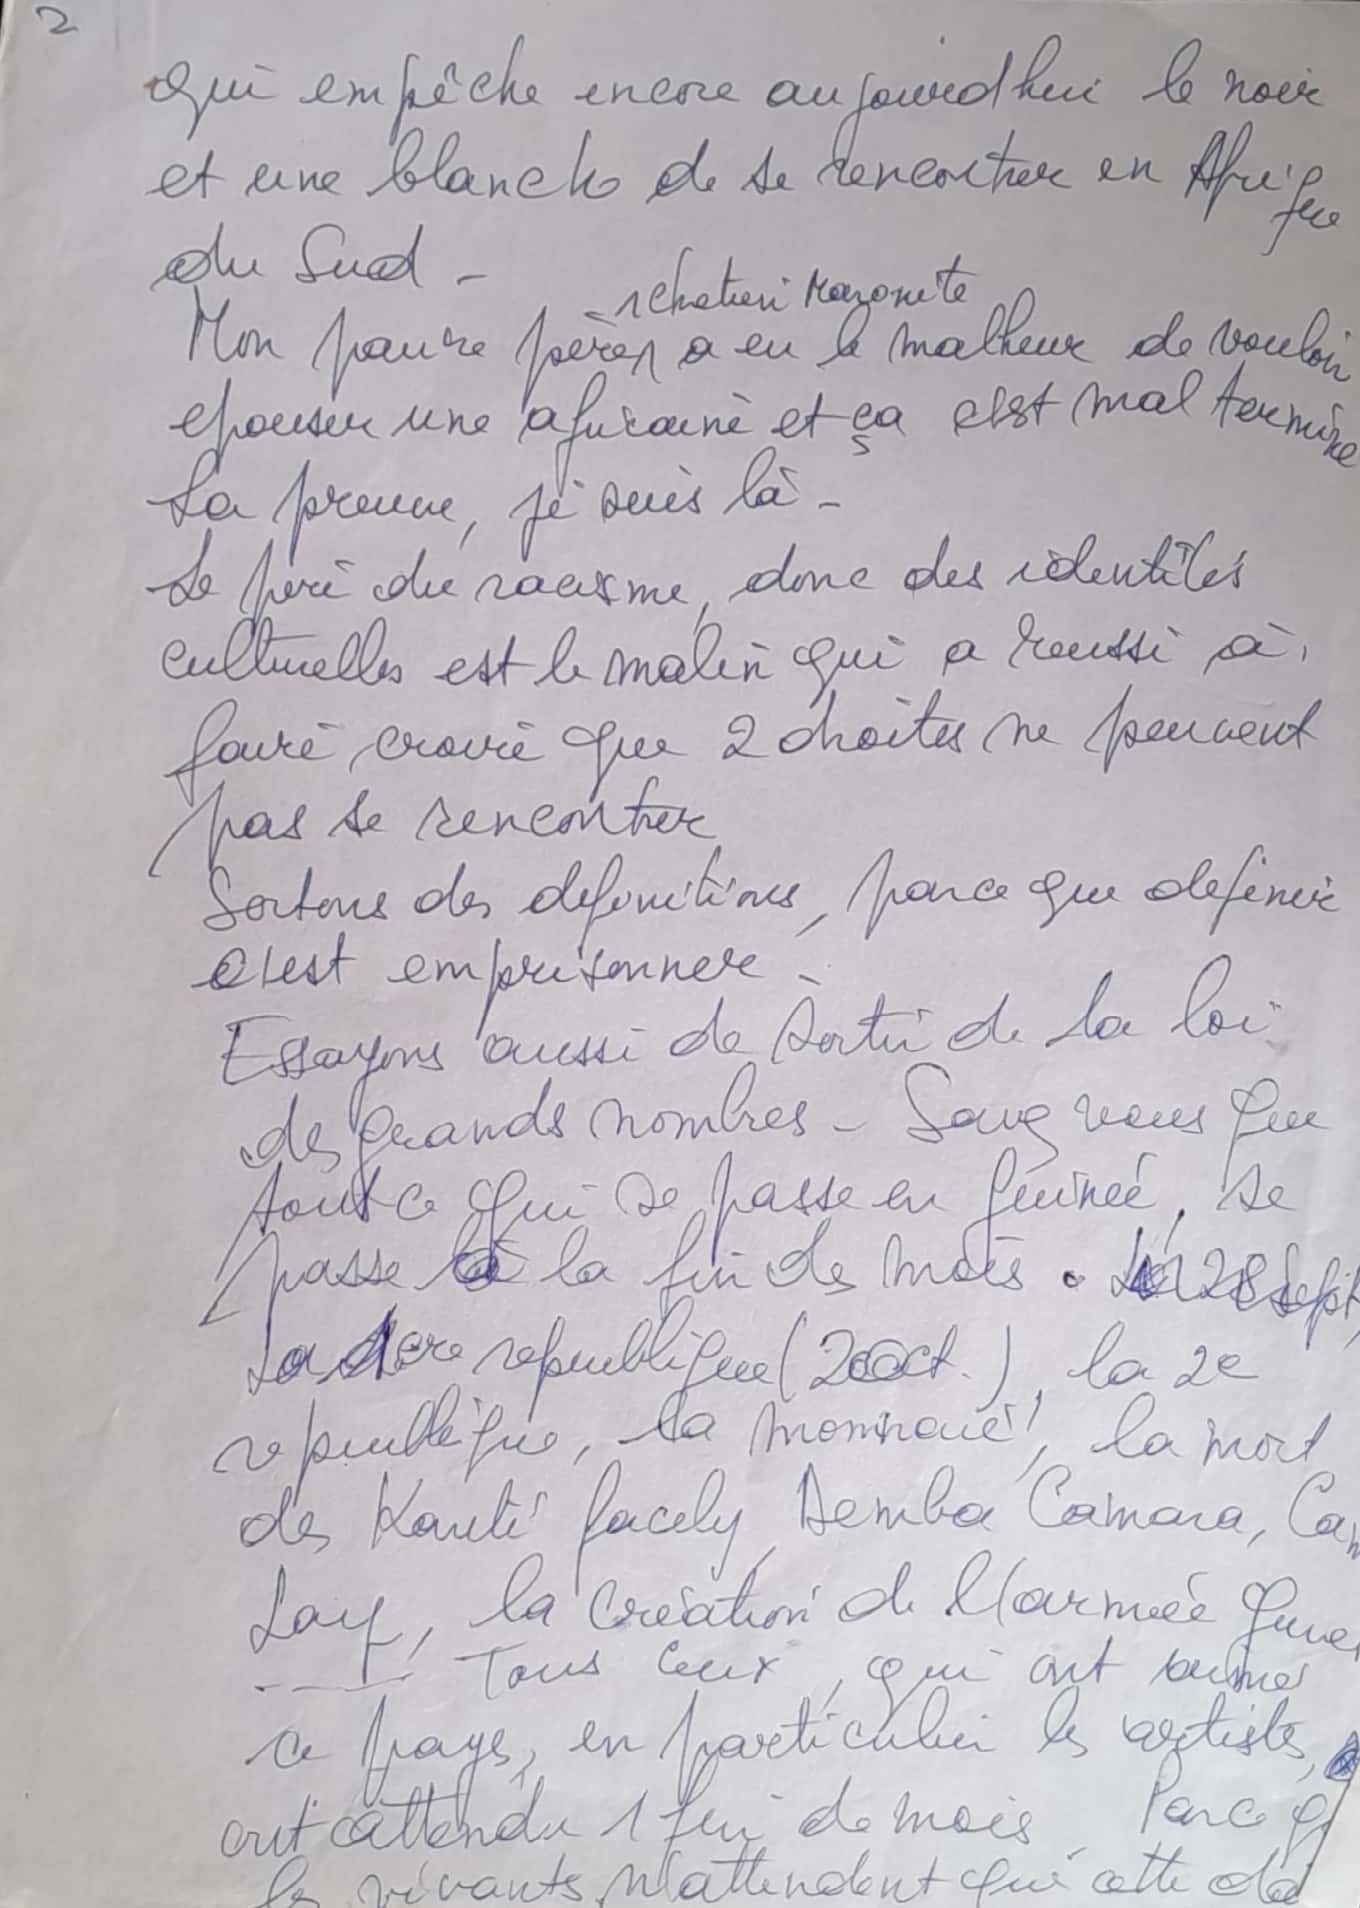 2
qui empêche encore aujourd'hui le noir
et une blanche de se rencontrer en Afrique
du Sud -
, chrétien Maronite
Mon pauvre père, a eu le malheur de vouloir
epouser une africaine et ça c'est mal terminé
La preuve, je suis là -
Le père du racisme, donc des identités
culturelles est le malin qui a reussi à
faire croire que 2 droites ne peuvent
pas se rencontrer
Sortons des definitions, parce que definir
c'est emprisonner -
Essayons aussi de sortir de la loi
des grands nombres - Savez vous que
tout ce qui se passe en Guinée, se
passe à la fin des mois. Le 28 Sept,
La 1ere republique (2 Oct.), la 2e
republique, la monnaie, la mort
des Kanté Facely, Demba Camara, Cam
Laye, la création de l'armée guine
Tous ceux, qui ont animé
ce pays, en particulier les artistes,
ont attendu 1 fin de mois Parce q
les vivants n'attendent que cette da